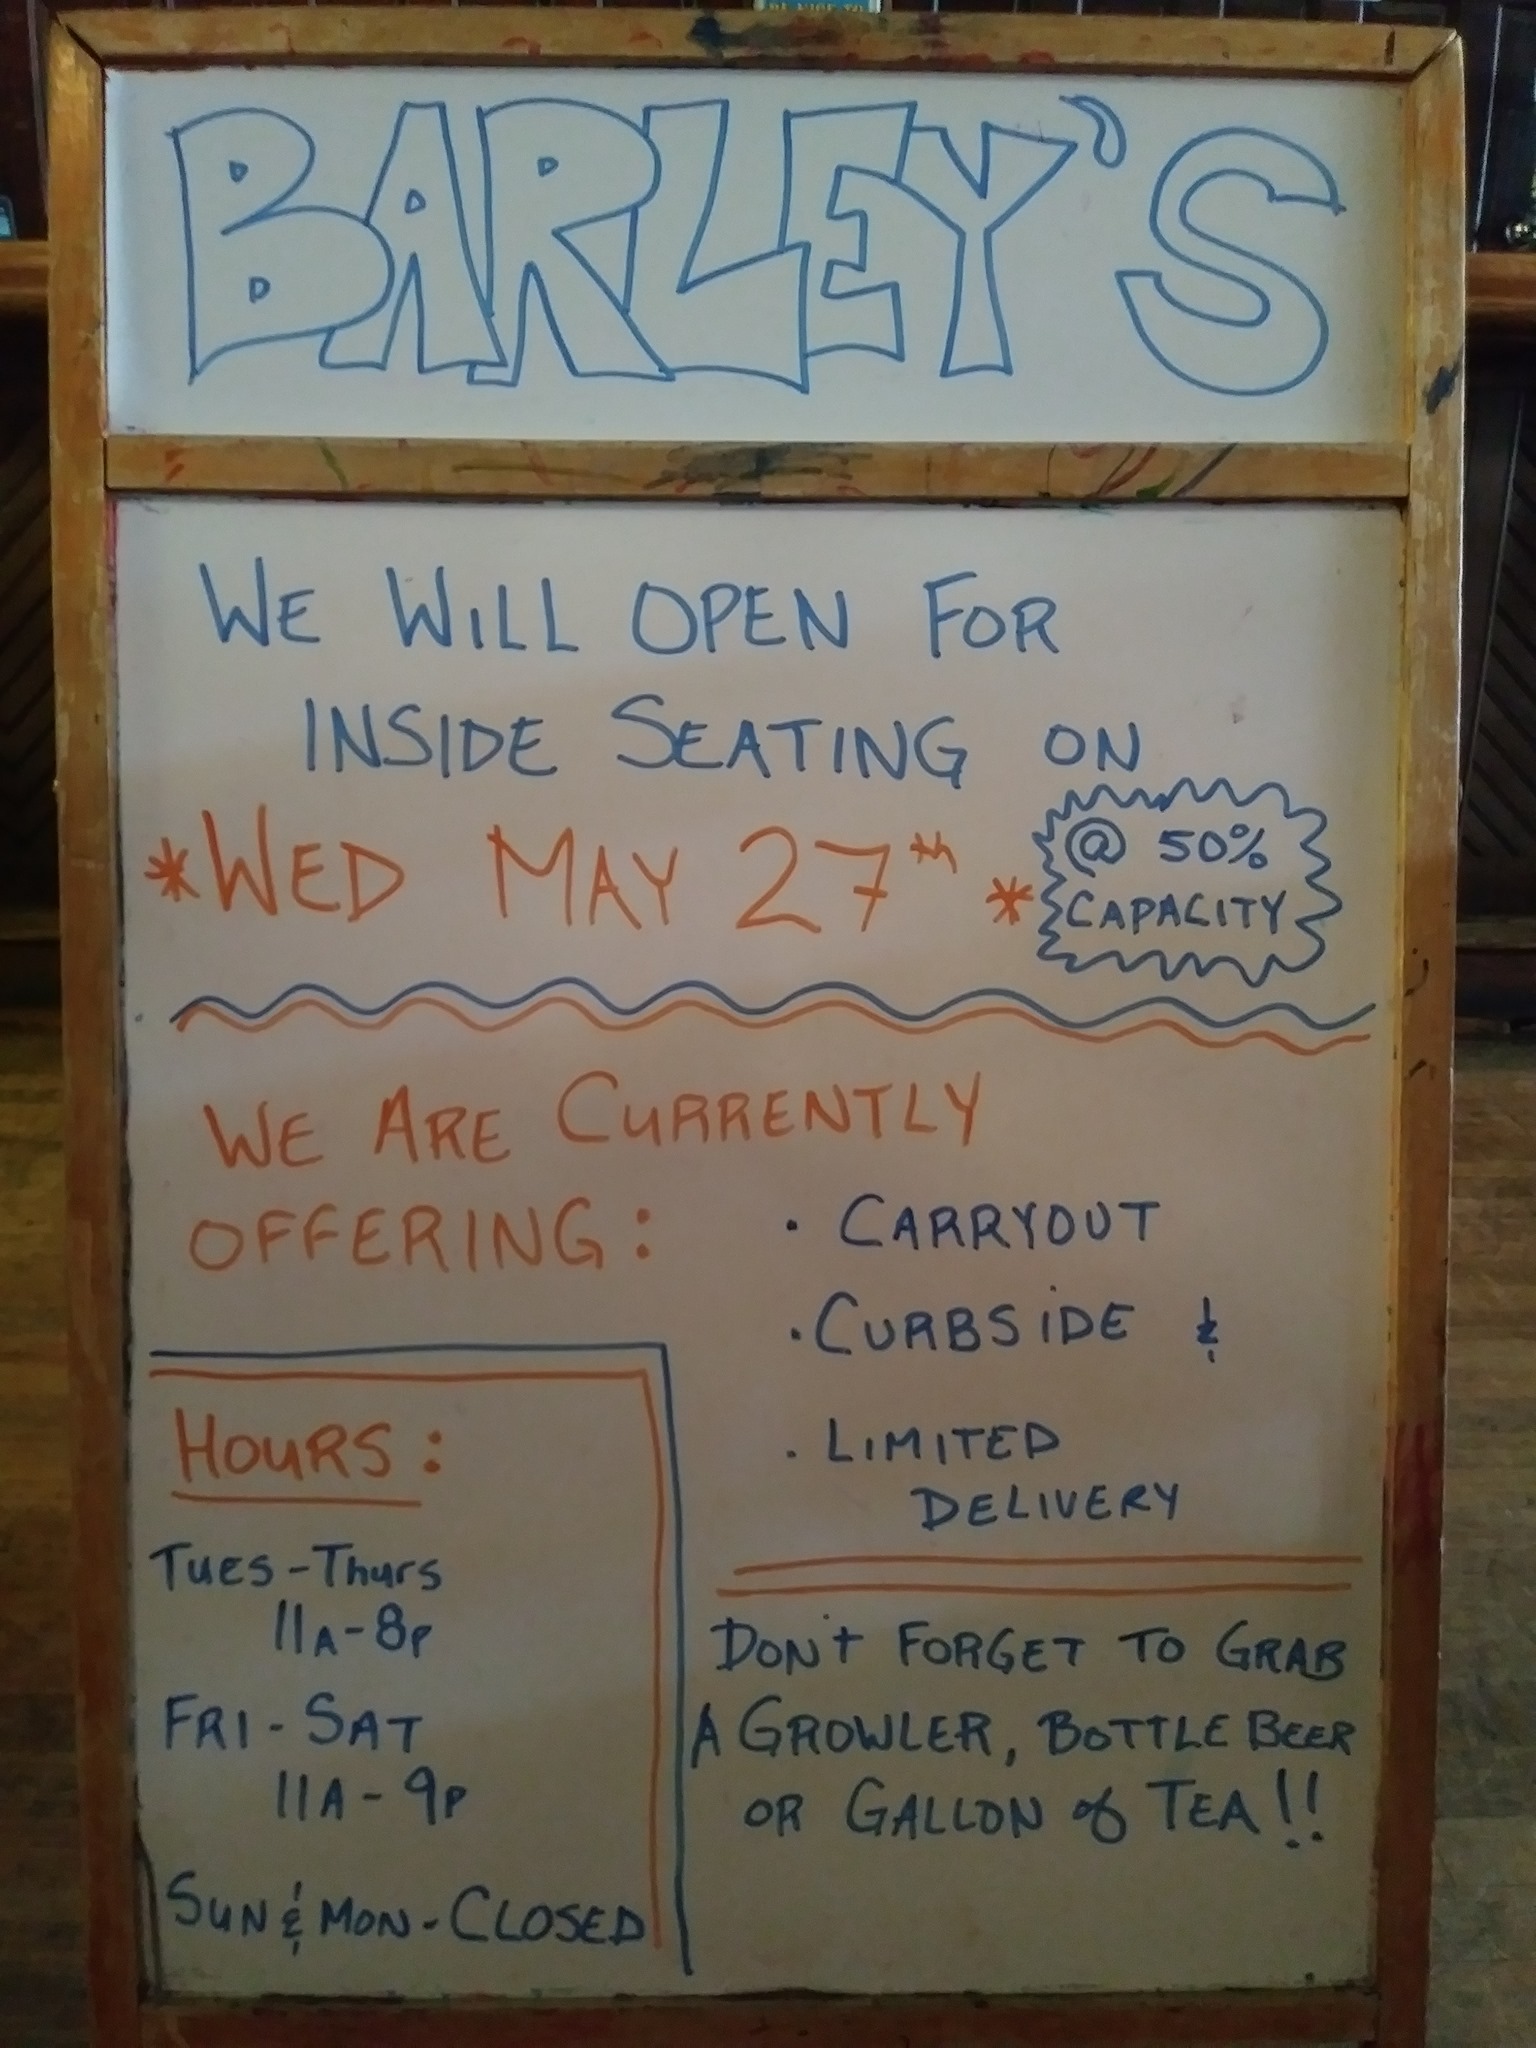 BARLEY'S
WE WILL OPEN FOR
INSIDE SEATING ON
*WED MAY 27th *
@ 50%
CAPACITY
WE ARE CURRENTLY
OFFERING:
· CARRYOUT
· CURBSIDE &
· LIMITED
DELIVERY
HOURS:
TUES-Thurs
11A-8P
FRI-SAT
11A-9P
SUN & MON-CLOSED
DON't FORGET TO GRAB
A GROWLER, BOTTLE BEER
OR GALLON of TEA!!